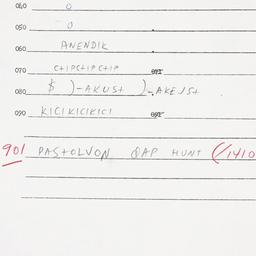 040 0
050 0
060 ANENDIK
070 C+IPC+IPC+IP
080 $ )-AKUS+ )-AKEJS+
090 KICIKICIKICI
901 PAS+OLVON QAP HUNT (/1410